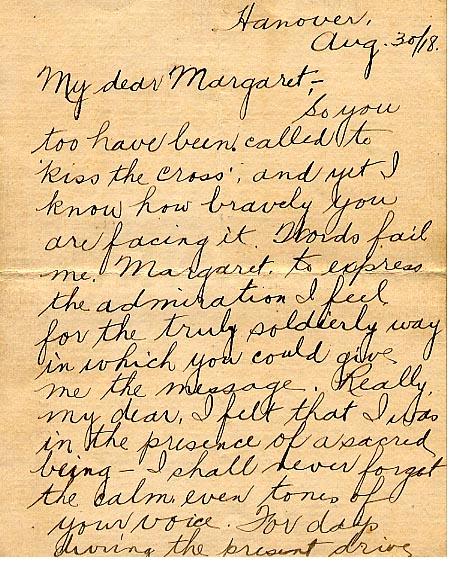 Hanover,
Aug. 30/18.
My dear Margaret,-
So you
too have been called to
'kiss the cross', and yet I
know how bravely you
are facing it. Words fail
me, Margaret, to express
the admiration I feel
for the truly soldierly way
in which you could give
me the message. Really,
my dear, I felt that I was
in the presence of a sacred
being – I shall never forget
the calm, even tones of
your voice. For days
during the present drive